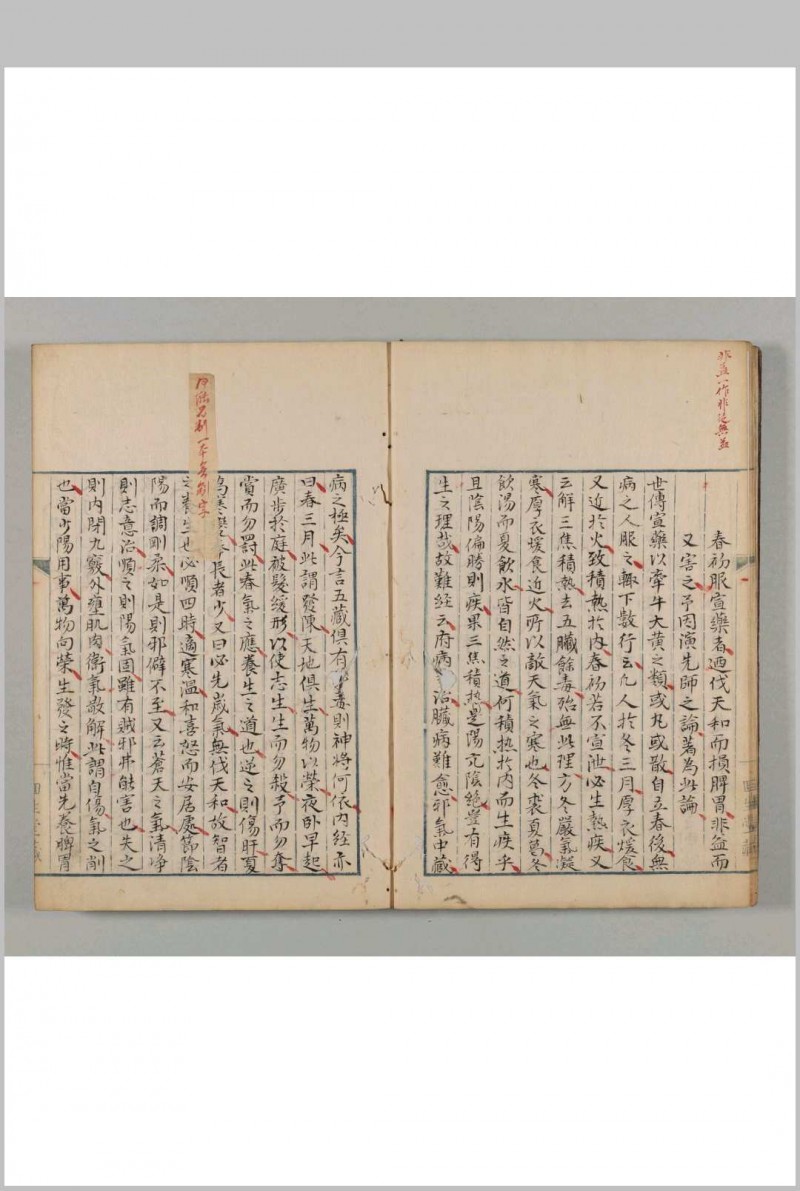 非益一作非徒無益
春初服宣藥者迺伐天和而損脾胃非益而
又害之予因演先師之論著為此論
世傳宣藥以牽牛大黃之類或丸或散自立春後無
病之人服之輒下數行云凡人於冬三月厚衣煖食
又近於火致積熱於內春初若不宣泄必生熱疾又
云解三焦積熱去五臟餘毒殆無此理方冬嚴氣凝
寒厚衣煖食近火所以敵天氣之寒也冬裘夏葛冬
飲湯而夏飲水皆自然之道何積热於內而生疾乎
且陰陽偏勝則疾果三焦積热是陽亢陰絕豈有得
生之理哉故難經云府病治臟病難愈邪氣中藏
病之極矣今言五藏俱有毒則神將何依內經亦
曰春三月此謂發陳天地俱生萬物以榮夜卧早起
廣步於庭被髮緩形以使志生生而勿殺予而勿奪
賞而勿罰此春氣之應養生之道也逆之則傷肝夏
為寒變奉長者少又曰必先歲氣無伐天和故智者
之養生也必順四時適寒溫和喜怒而安居處節陰
陽而調剛柔如是則邪僻不至又云蒼天之氣清净
則志意治順之則陽氣固雖有賊邪弗能害也失之
則內閉九竅外壅肌肉衛氣散解此謂自傷氣之削
也當少陽用事萬物向榮生發之時惟當先養脾胃